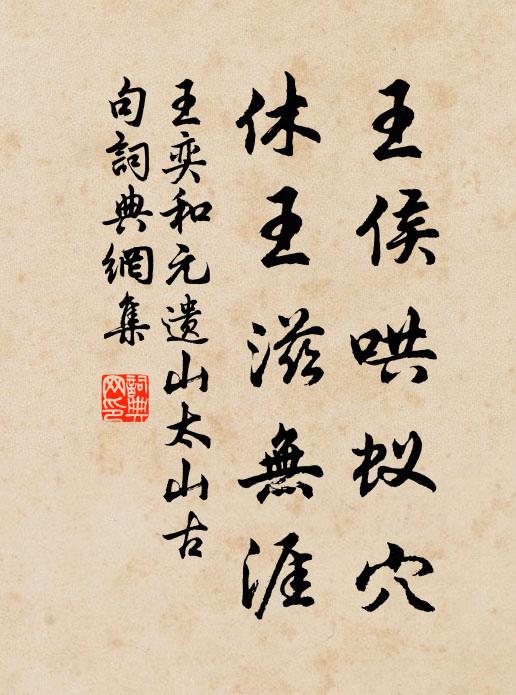 王侯哄蚁穴
休王滋無涯
王奕和元遗山太山古
句詞典網集
詞典
网印